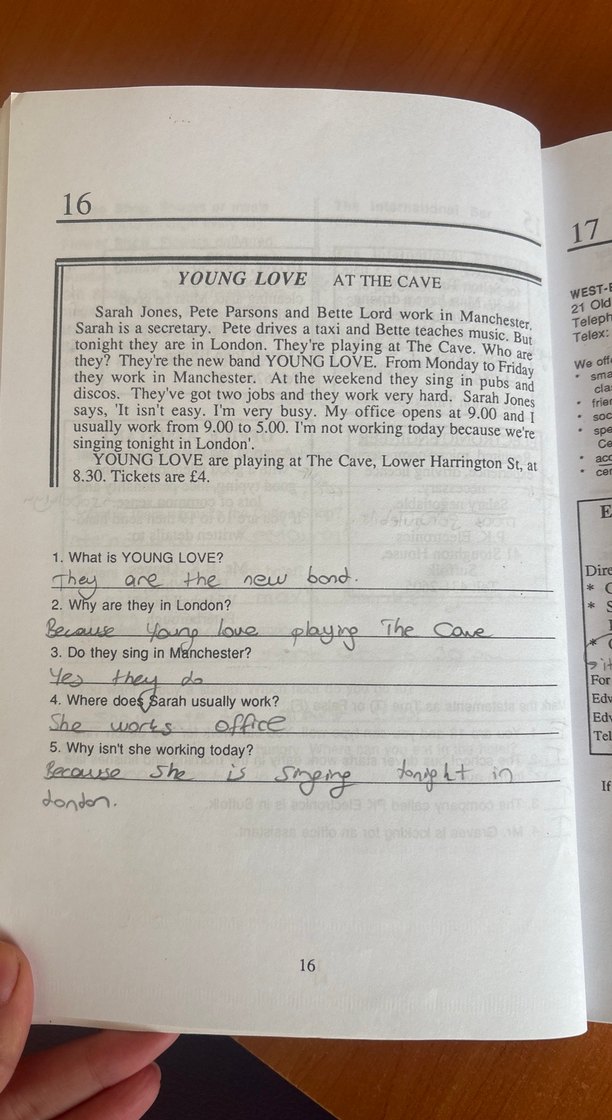 16
YOUNG LOVE AT THE CAVE
Sarah Jones, Pete Parsons and Bette Lord work in Manchester.
Sarah is a secretary. Pete drives a taxi and Bette teaches music. But
tonight they are in London. They're playing at The Cave. Who are
they? They're the new band YOUNG LOVE. From Monday to Friday
they work in Manchester. At the weekend they sing in pubs and
discos. They've got two jobs and they work very hard. Sarah Jones
says, 'It isn't easy. I'm very busy. My office opens at 9.00 and I
usually work from 9.00 to 5.00. I'm not working today because we're
singing tonight in London'.
YOUNG LOVE are playing at The Cave, Lower Harrington St, at
8.30. Tickets are £4.
1. What is YOUNG LOVE?
They are the new band.
2. Why are they in London?
Because Young love playing The Cave
3. Do they sing in Manchester?
Yes they do
4. Where does Sarah usually work?
She works office
5. Why isn't she working today?
Because She is singing tonight in
London.
16
17
WEST-
21 Old
Teleph
Telex:
We offe
* sma
cla
* frie
* soc
* spe
Ce
* acc
* cer
E
Dire
For
Edv
Edv
Tel
If